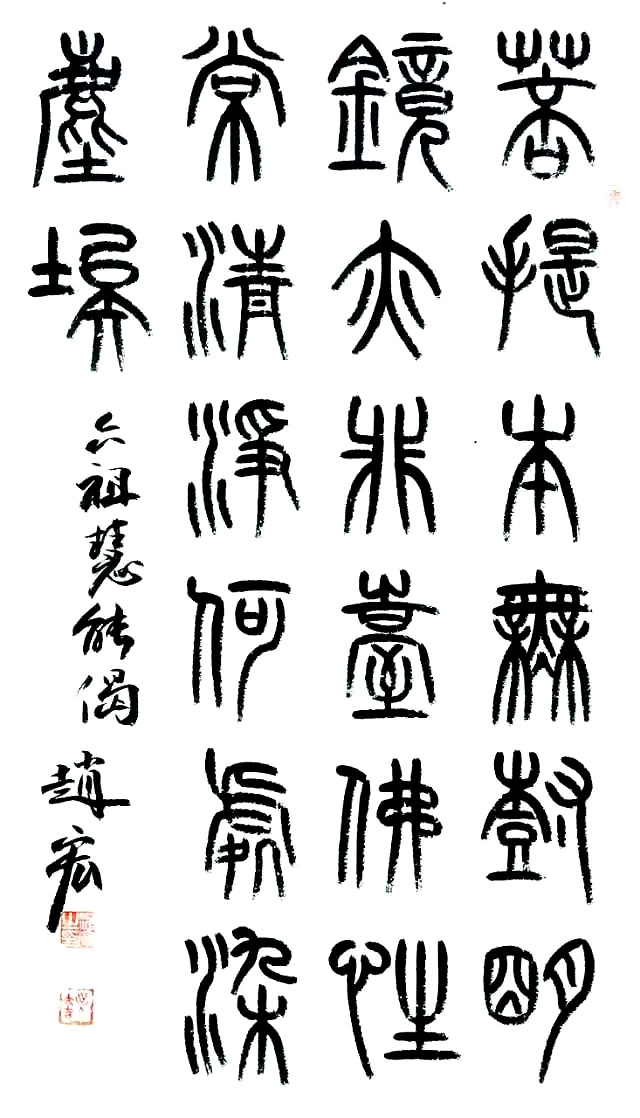 菩提本無樹明
鏡亦非臺佛性
常清淨何處染
塵埃
六祖慧能偈
趙宏